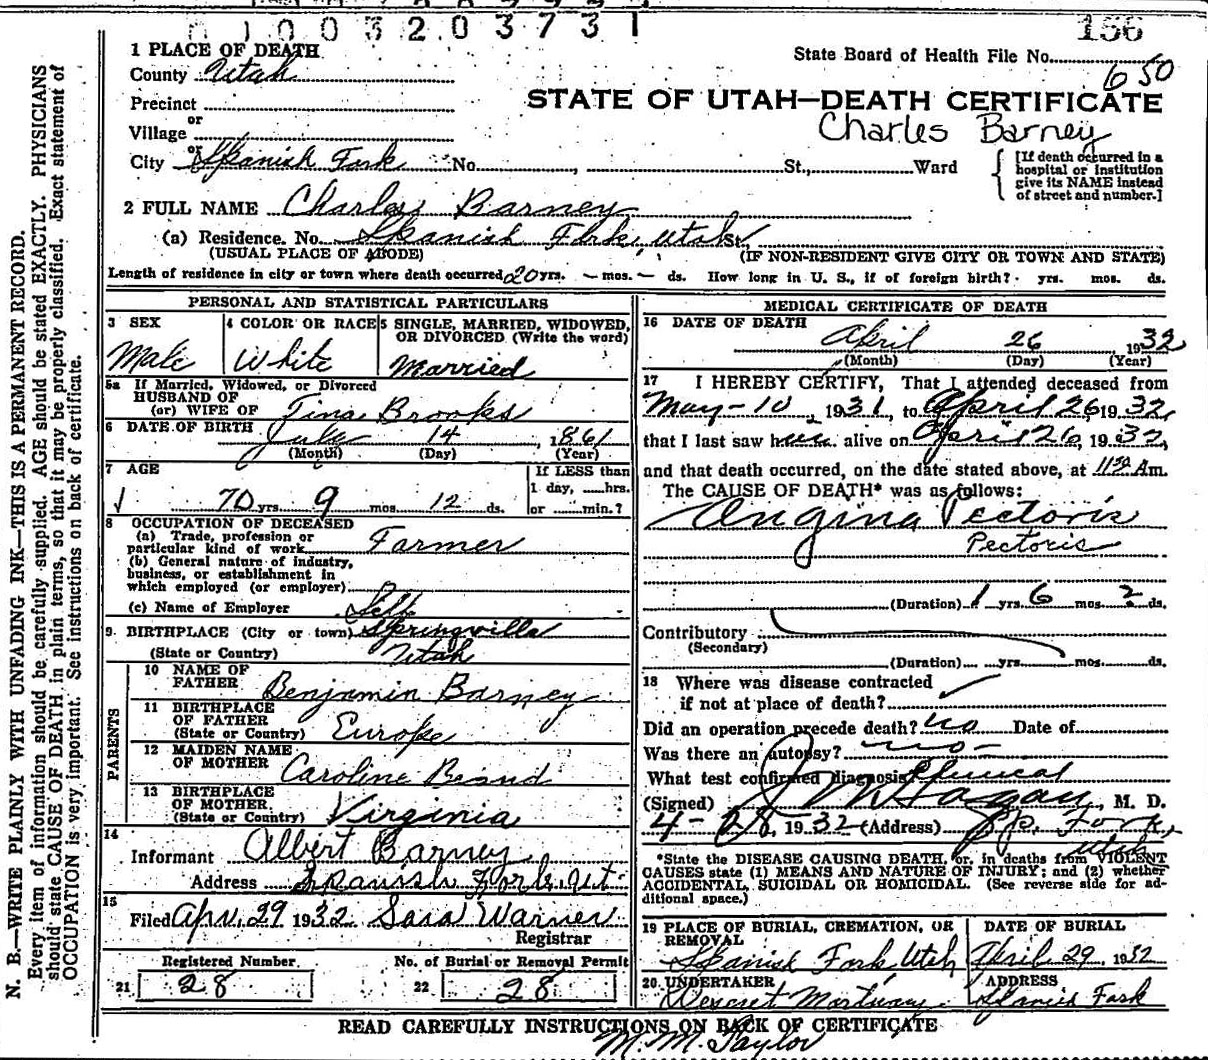 0 1 0 0 3 2 0 3 7 3 1
156
State Board of Health File No. 650
STATE OF UTAH—DEATH CERTIFICATE
Charles Barney
1 PLACE OF DEATH
County Utah
Precinct
or
Village
or
City Spanish Fork No. , St., Ward
[If death occurred in a
hospital or institution
give its NAME instead
of street and number.]
2 FULL NAME Charles Barney
(a) Residence. No. Spanish Fork, Utah St.,
(USUAL PLACE OF ABODE) (IF NON-RESIDENT GIVE CITY OR TOWN AND STATE)
Length of residence in city or town where death occurred 20 yrs. — mos. — ds. How long in U. S., if of foreign birth? yrs. mos. ds.
PERSONAL AND STATISTICAL PARTICULARS
3 SEX 4 COLOR OR RACE 5 SINGLE, MARRIED, WIDOWED,
OR DIVORCED (Write the word)
Male White Married
5a If Married, Widowed, or Divorced
HUSBAND OF
(or) WIFE OF Tina Brooks
6 DATE OF BIRTH July 14, 1861
(Month) (Day) (Year)
7 AGE If LESS than
1 day, ......hrs.
70 yrs. 9 mos. 12 ds. or ......min.?
8 OCCUPATION OF DECEASED
(a) Trade, profession or
particular kind of work Farmer
(b) General nature of industry,
business, or establishment in
which employed (or employer)
(c) Name of Employer Self
9. BIRTHPLACE (City or town) Springville
(State or Country) Utah
PARENTS
10 NAME OF
FATHER Benjamin Barney
11 BIRTHPLACE
OF FATHER
(State or Country) Europe
12 MAIDEN NAME
OF MOTHER Caroline Beand
13 BIRTHPLACE
OF MOTHER.
(State or Country) Virginia
14
Informant Albert Barney
Address Spanish Fork Ut
15
Filed Apr. 29 1932 Sara Warner
Registrar
Registered Number. No. of Burial or Removal Permit
21 28 22 28
MEDICAL CERTIFICATE OF DEATH
16 DATE OF DEATH
April 26 1932
(Month) (Day) (Year)
17 I HEREBY CERTIFY, That I attended deceased from
May-10, 1931, to April 26 1932,
that I last saw him alive on April 26, 1932,
and that death occurred, on the date stated above, at 11 30 Am.
The CAUSE OF DEATH* was as follows:
Angina Pectoris
Pectoris
(Duration) 1 yrs. 6 mos. ? ds.
Contributory
(Secondary)
(Duration) yrs. mos. ds.
18 Where was disease contracted
if not at place of death?
Did an operation precede death? no Date of
Was there an autopsy? no
What test confirmed diagnosis? Clinical
(Signed) J M Hagan, M. D.
4-28, 1932 (Address) Sp. Fork,
Utah
*State the DISEASE CAUSING DEATH, or, in deaths from VIOLENT
CAUSES state (1) MEANS AND NATURE OF INJURY; and (2) whether
ACCIDENTAL, SUICIDAL OR HOMICIDAL. (See reverse side for ad-
ditional space.)
19 PLACE OF BURIAL, CREMATION, OR
REMOVAL
DATE OF BURIAL
Spanish Fork, Utah April 29, 1932
20 UNDERTAKER ADDRESS
Deseret Mortuary Spanish Fork
READ CAREFULLY INSTRUCTIONS ON BACK OF CERTIFICATE
M. M. Taylor
N. B.—WRITE PLAINLY WITH UNFADING INK—THIS IS A PERMANENT RECORD.
Every item of information should be carefully supplied. AGE should be stated EXACTLY. PHYSICIANS
should state CAUSE OF DEATH in plain terms, so that it may be properly classified. Exact statement of
OCCUPATION is very important. See instructions on back of certificate.